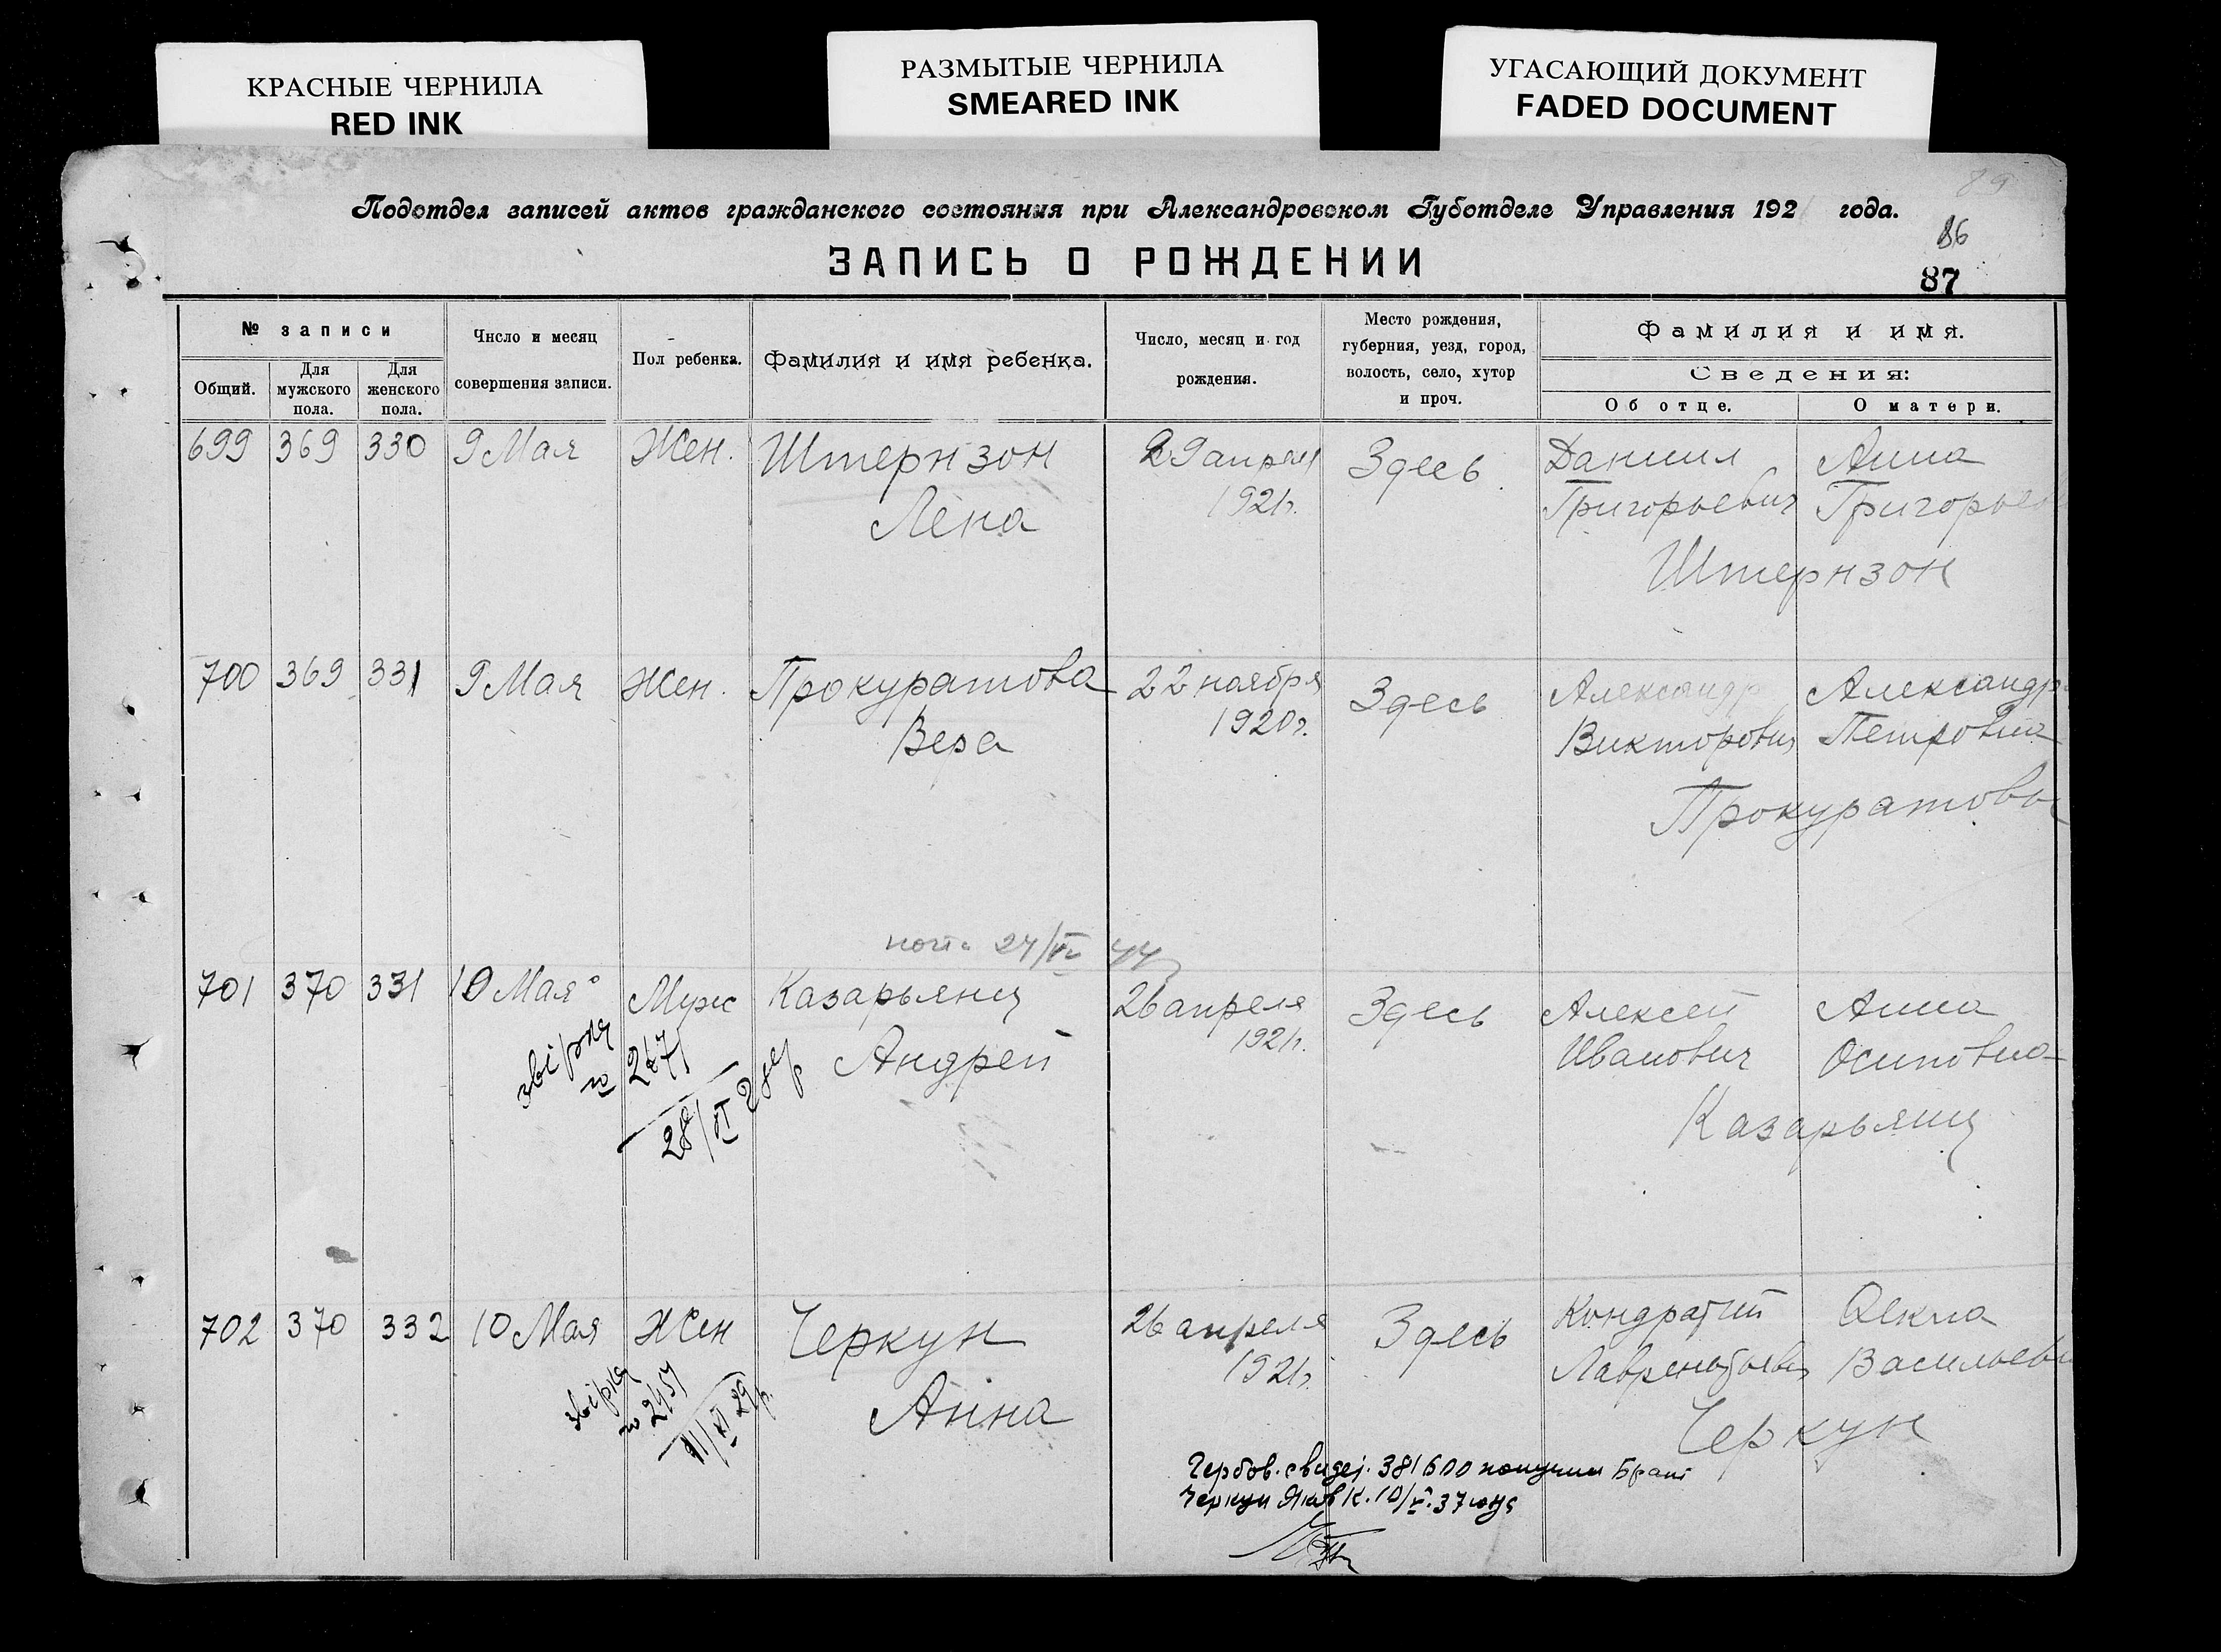 КРАСНЫЕ ЧЕРНИЛА
RED INK
РАЗМЫТЫЕ ЧЕРНИЛА
SMEARED INK
УГАСАЮЩИЙ ДОКУМЕНТ
FADED DOCUMENT
89
Подотдел записей актов гражданского состояния при Александровском Губотделе Управления 192 года.
86
ЗАПИСЬ О РОЖДЕНИИ
87
№ записи
Общий.
Для мужского пола.
Для женского пола.
Число и месяц
совершения записи.
Пол ребенка.
Фамилия и имя ребенка.
Число, месяц и год
рождения.
Место рождения,
губерния, уезд, город,
волость, село, хутор
и проч.
Фамилия и имя.
Сведения:
Об отце.
О матери.
699 369 330 9 Мая Жен. Штернзон 29 апреля Здесь Даниил Анна
1921г. Григорьевич Григорьев
Лена
Штернзон
700 369 331 9 Мая Жен. Прокуратова 22 ноября Здесь Александр Александр
Вера 1920г. Викторович Петровна
Прокуратовы
24/IV 44
701 370 331 10 Мая Муж Казарьянц 26 апреля Здесь Алексей Анна
Андрей 1921г. Иванович Осиповна
Казарьянц
звірка
28/XI 28р
702 370 332 10 Мая Жен Черкун 26 апреля Здесь Кондратий Фекла
1921г. Лаврентьевич Васильевн
Анна
Черкун
звірка
по 2457
11/XI 29р.
Гербов. свидет. 381600 получил Брат
Черкун Яков К. 10/V.37